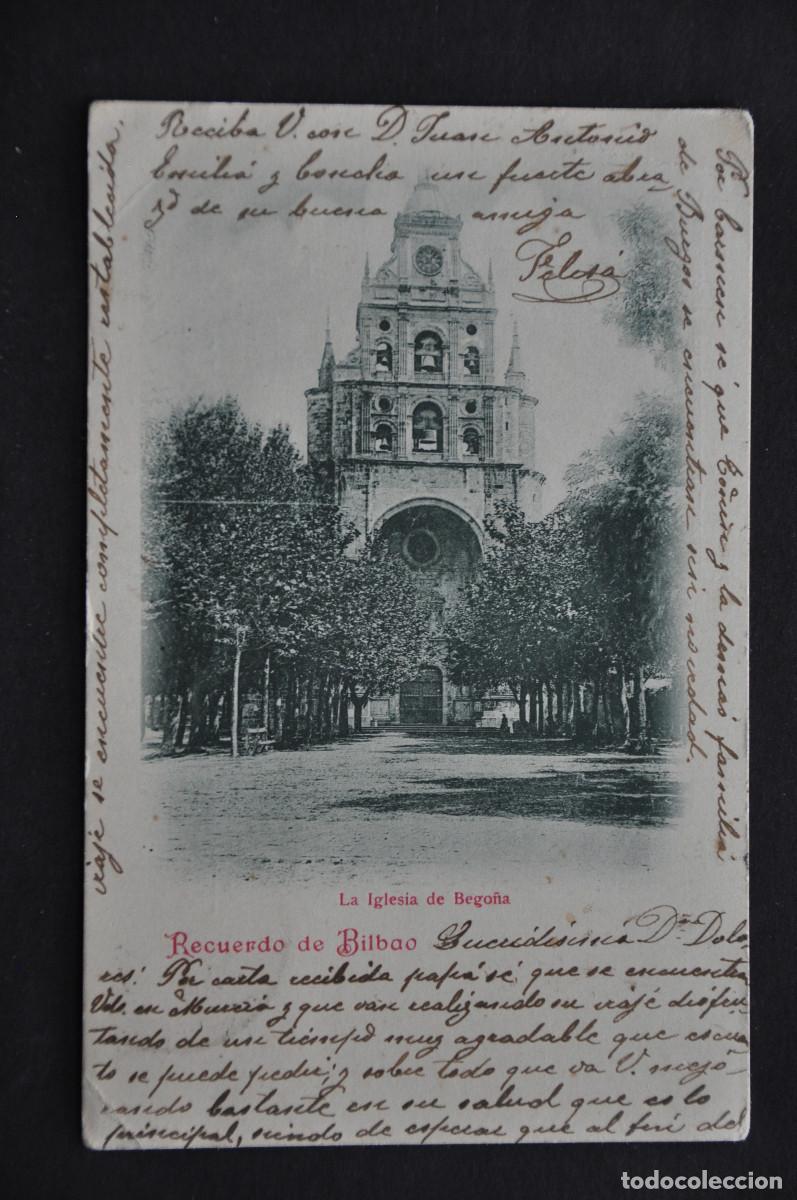 La Iglesia de Begoña
Recuerdo de Bilbao
Queridisima Dña Dolo-
res: Por carta recibida papá sé que se encuentra
Vds. en Murcia y que van realizando su viaje disfru-
tando de un tiempo muy agradable que es cuan-
to se puede pedir; y sobre todo que va V. mejo-
rando bastante en su salud que es lo
principal, siendo de esperar que al fin del
viaje se encuentre completamente restablecida.
Por Carmen sé que y la demas familia
de Burgos se encuentran sin novedad.
Reciba V. con D. Juan Antonio
Emilia y Concha un fuerte abra
zo de su buena amiga
Felisa
todocoleccion